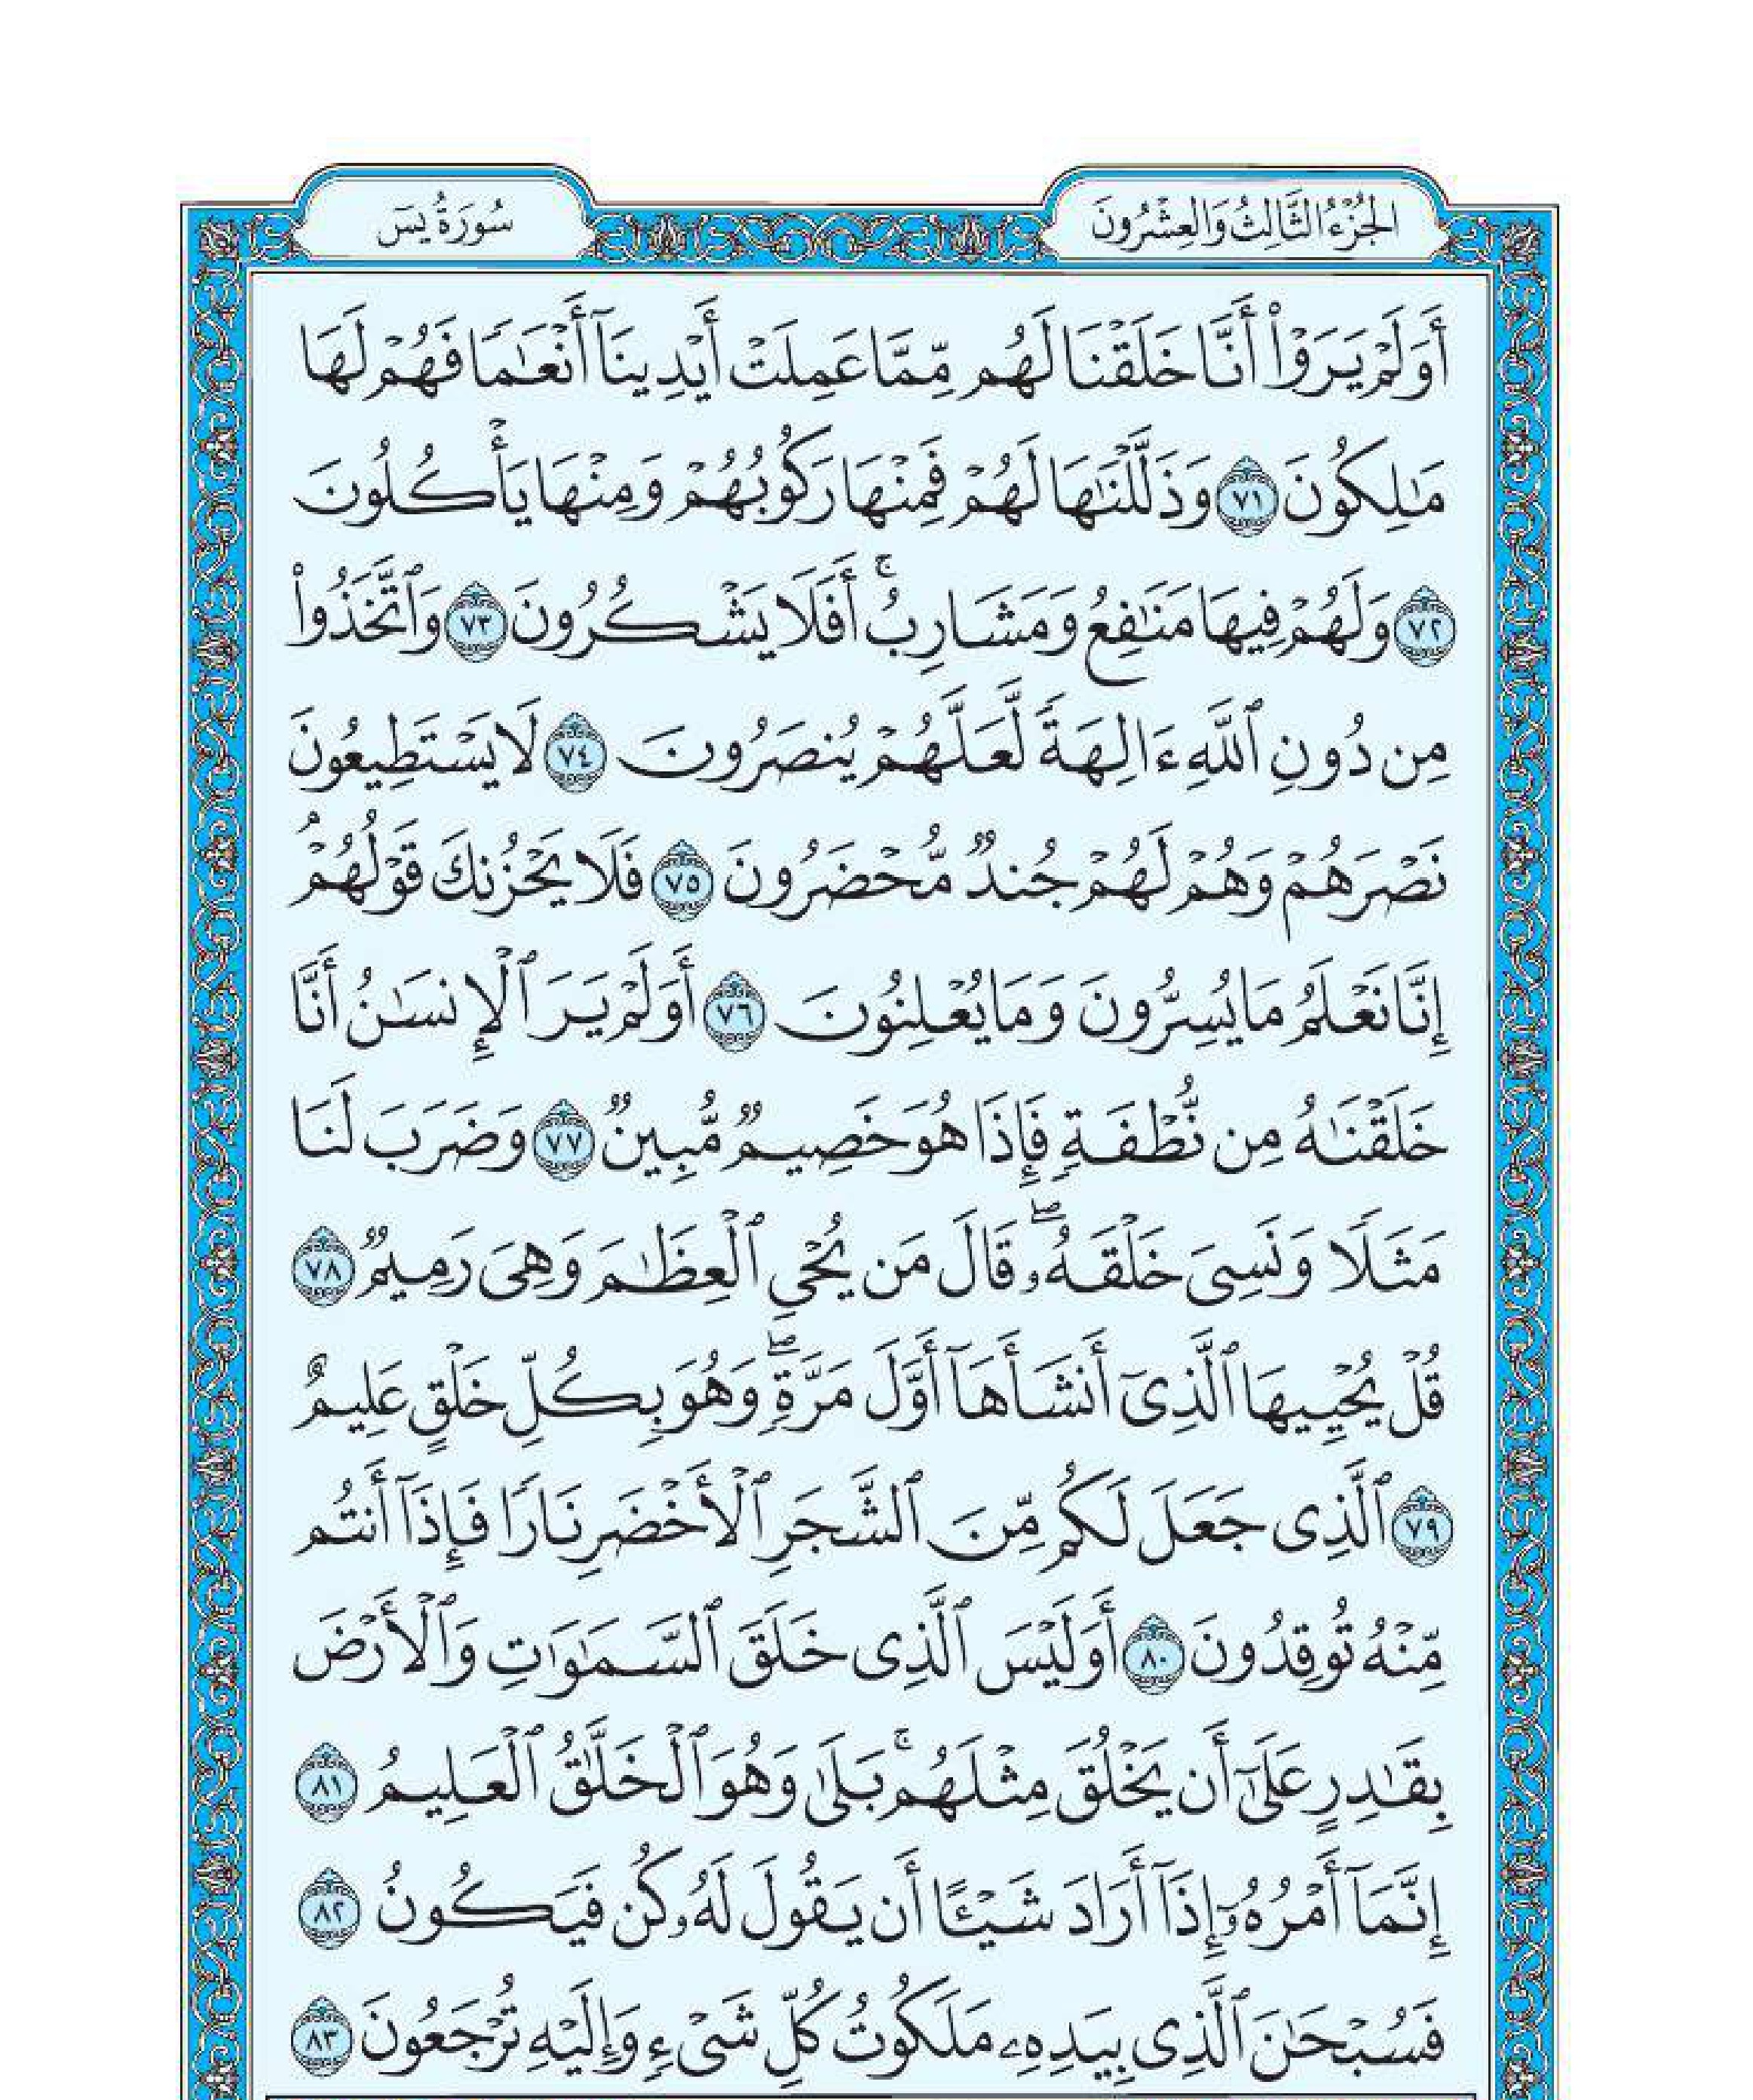 الجُزْءُ الثَّالِثُ وَالعِشْرُونَ
سُورَةُ يسٓ
أَوَلَمْ يَرَوْا۟ أَنَّا خَلَقْنَا لَهُم مِّمَّا عَمِلَتْ أَيْدِينَآ أَنْعَٰمًا فَهُمْ لَهَا
مَٰلِكُونَ ٧١ وَذَلَّلْنَٰهَا لَهُمْ فَمِنْهَا رَكُوبُهُمْ وَمِنْهَا يَأْكُلُونَ
٧٢ وَلَهُمْ فِيهَا مَنَٰفِعُ وَمَشَارِبُ ۚ أَفَلَا يَشْكُرُونَ ٧٣ وَٱتَّخَذُوا۟
مِن دُونِ ٱللَّهِ ءَالِهَةً لَّعَلَّهُمْ يُنصَرُونَ ٧٤ لَا يَسْتَطِيعُونَ
نَصْرَهُمْ وَهُمْ لَهُمْ جُندٌ مُّحْضَرُونَ ٧٥ فَلَا يَحْزُنكَ قَوْلُهُمْ ۘ
إِنَّا نَعْلَمُ مَا يُسِرُّونَ وَمَا يُعْلِنُونَ ٧٦ أَوَلَمْ يَرَ ٱلْإِنسَٰنُ أَنَّا
خَلَقْنَٰهُ مِن نُّطْفَةٍ فَإِذَا هُوَ خَصِيمٌ مُّبِينٌ ٧٧ وَضَرَبَ لَنَا
مَثَلًا وَنَسِىَ خَلْقَهُۥ ۖ قَالَ مَن يُحْىِ ٱلْعِظَٰمَ وَهِىَ رَمِيمٌ ٧٨
قُلْ يُحْيِيهَا ٱلَّذِىٓ أَنشَأَهَآ أَوَّلَ مَرَّةٍ ۖ وَهُوَ بِكُلِّ خَلْقٍ عَلِيمٌ
٧٩ ٱلَّذِى جَعَلَ لَكُم مِّنَ ٱلشَّجَرِ ٱلْأَخْضَرِ نَارًا فَإِذَآ أَنتُم
مِّنْهُ تُوقِدُونَ ٨٠ أَوَلَيْسَ ٱلَّذِى خَلَقَ ٱلسَّمَٰوَٰتِ وَٱلْأَرْضَ
بِقَٰدِرٍ عَلَىٰٓ أَن يَخْلُقَ مِثْلَهُم ۚ بَلَىٰ وَهُوَ ٱلْخَلَّٰقُ ٱلْعَلِيمُ ٨١
إِنَّمَآ أَمْرُهُۥٓ إِذَآ أَرَادَ شَيْـًٔا أَن يَقُولَ لَهُۥ كُن فَيَكُونُ ٨٢
فَسُبْحَٰنَ ٱلَّذِى بِيَدِهِۦ مَلَكُوتُ كُلِّ شَىْءٍ وَإِلَيْهِ تُرْجَعُونَ ٨٣